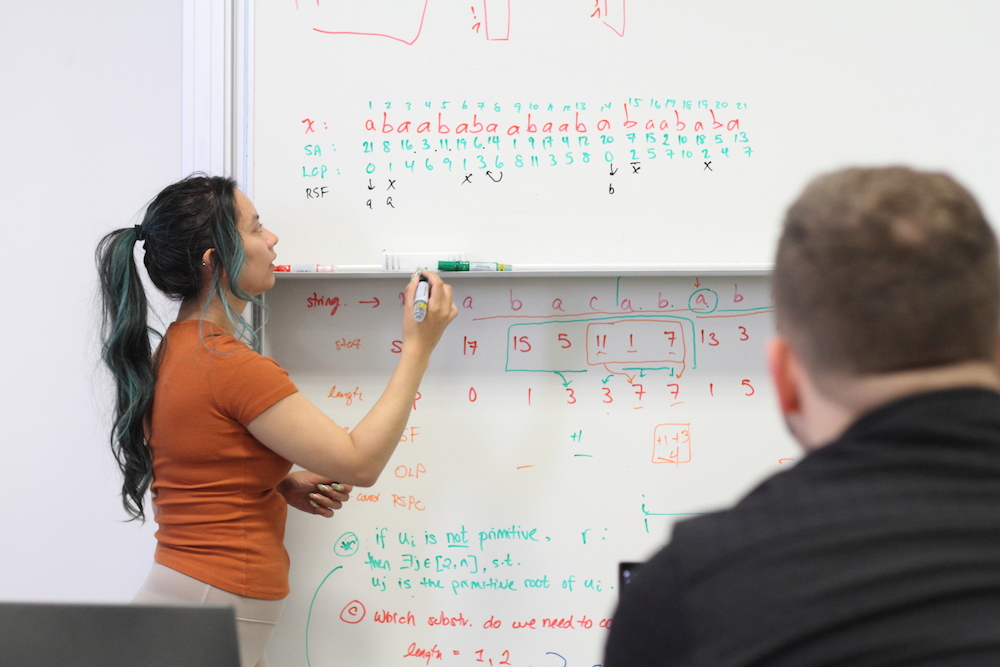 1 2 3 4 5 6 7 8 9 10 11 12 13 14 15 16 17 18 19 20 21
x : a b a a b a b a a b a a b a b a a b a b a
SA : 21 8 16 3 11 19 6 14 1 9 17 4 12 20 7 15 2 10 18 5 13
LCP : 0 1 4 6 9 1 3 6 8 11 3 5 8 0 2 5 7 10 2 4 7
x x x x
RSF
a a b
string → a b a c a b a b
start 17 15 5 11 1 7 13 3
length 0 1 3 3 7 7 1 5
+1 +1 +3
4
OLP
RSPC
if ui is not primitive, r :
then ∃j∈[2,n], s.t.
uj is the primitive root of ui.
c which substr. do we need to
length = 1, 2